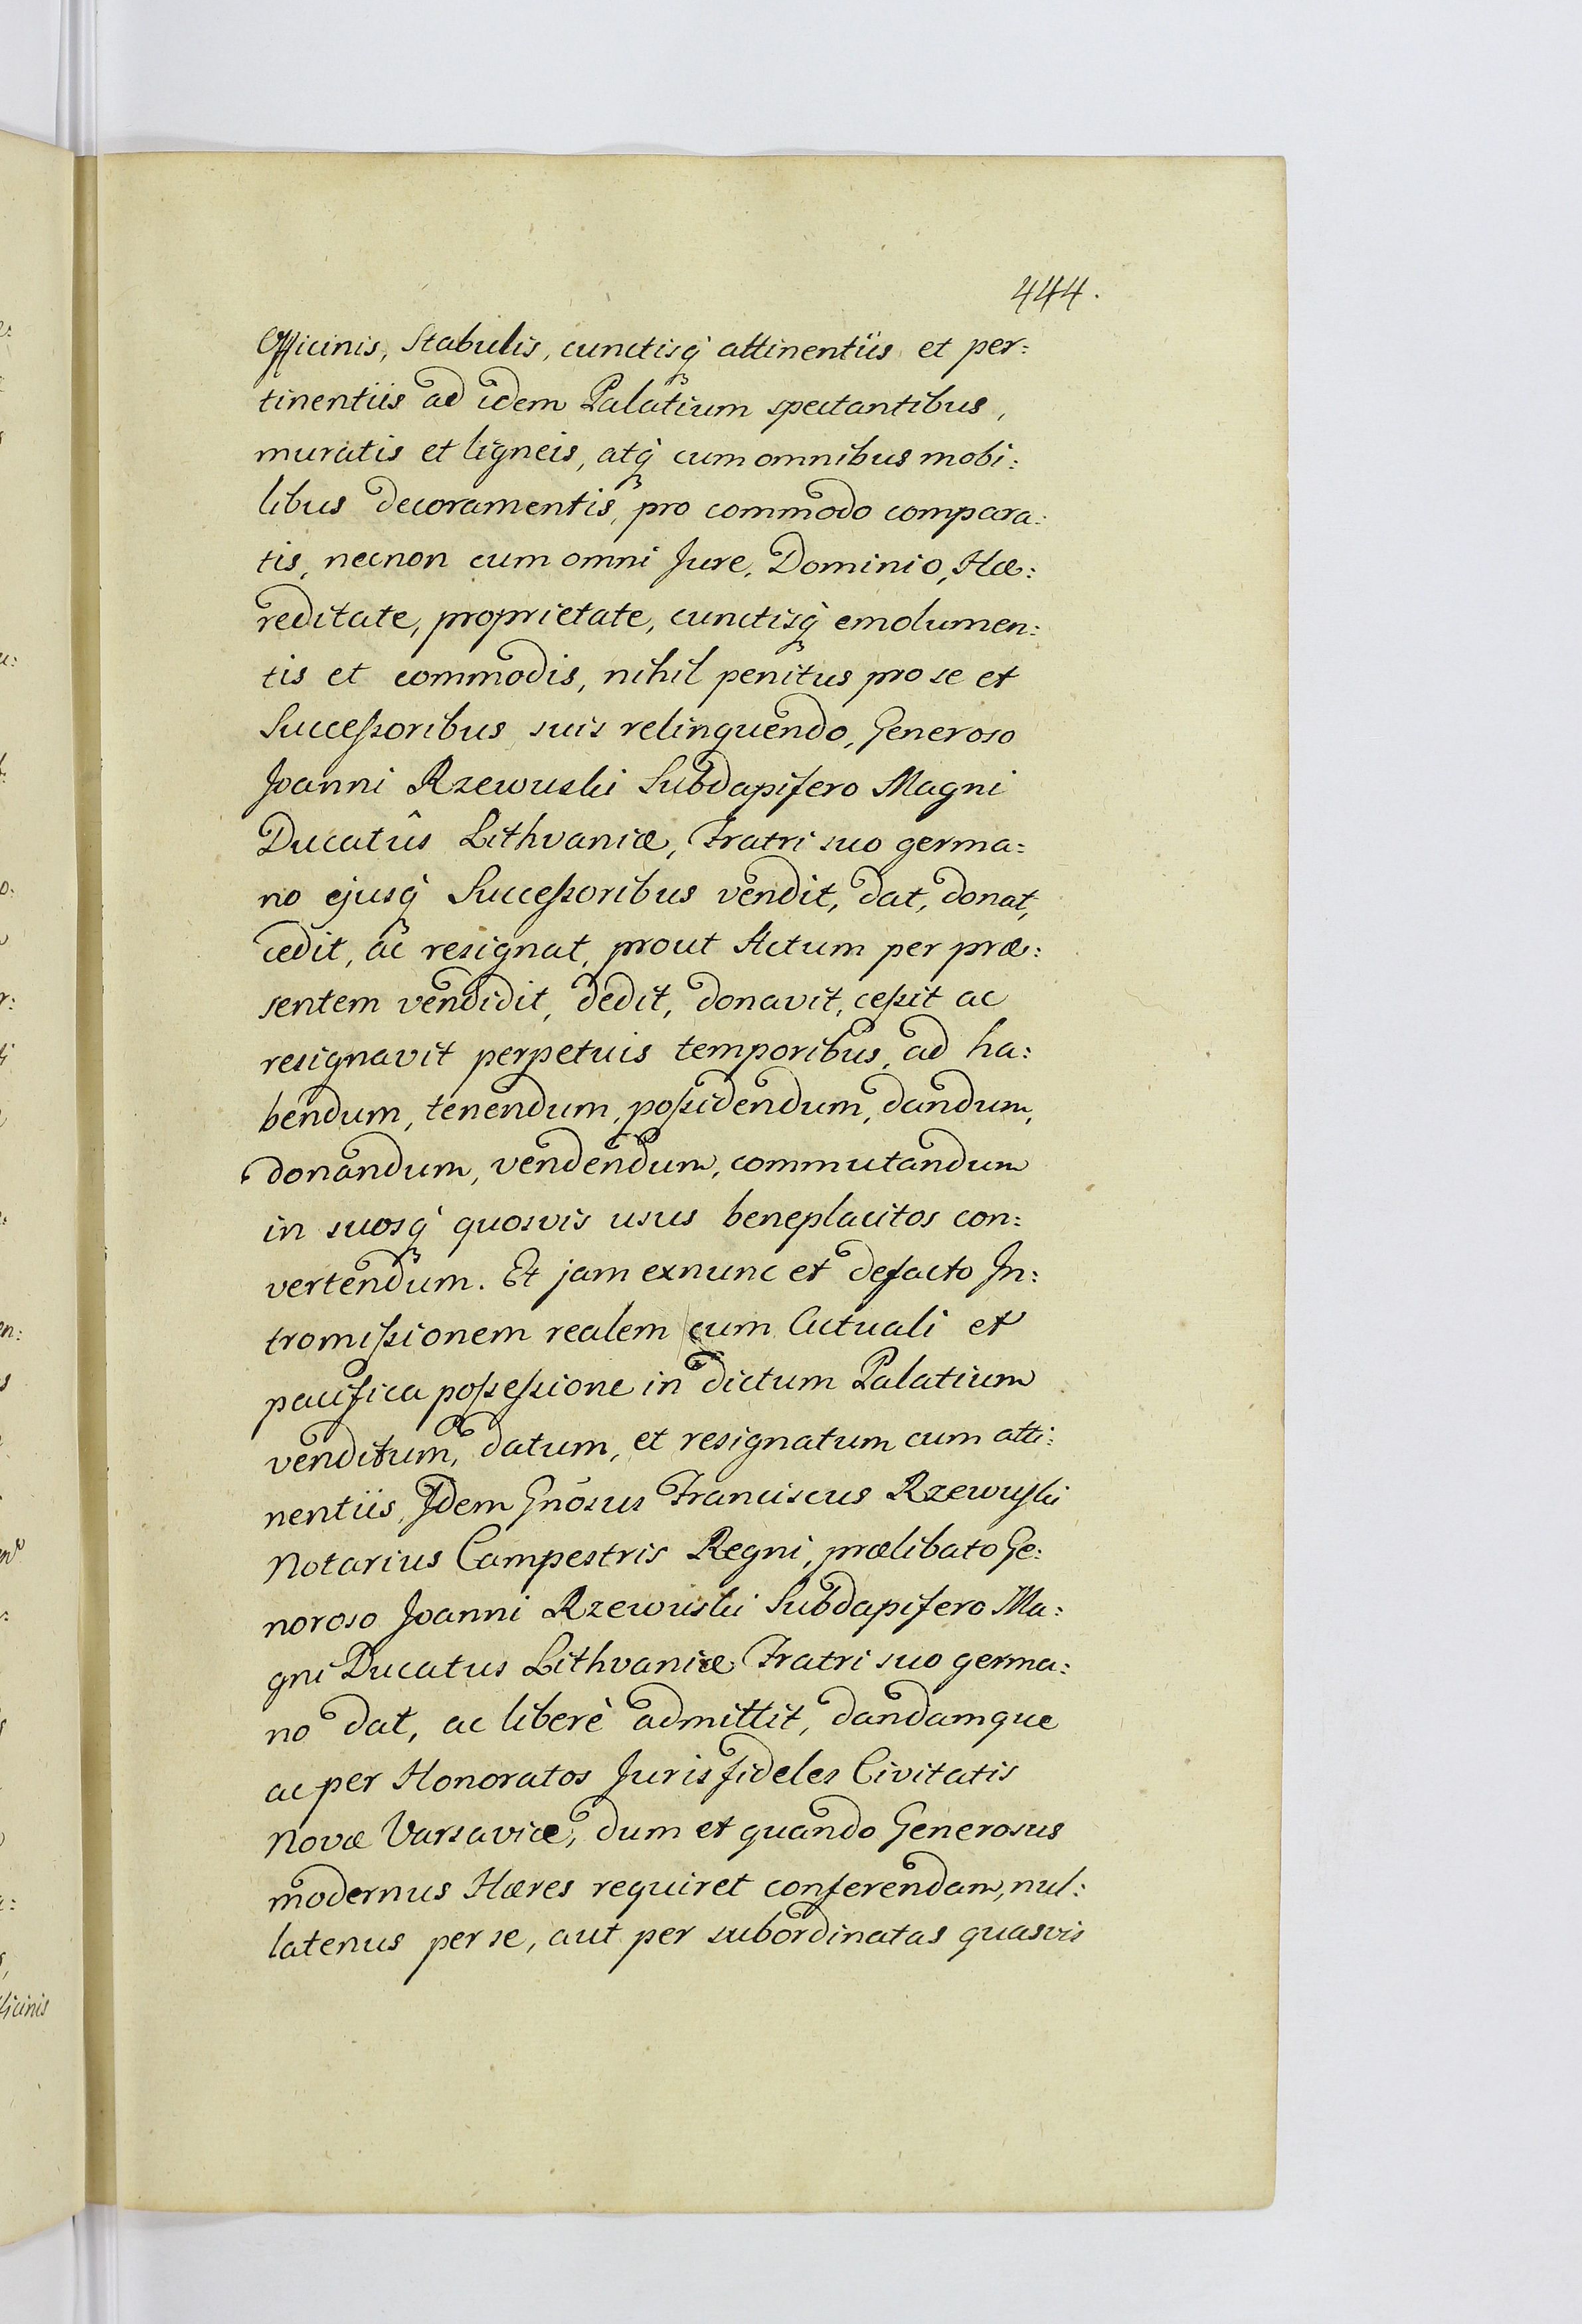 444.
Officinis, Stabulis, cunctisq́ attinentiis et per:
tinentiis ad idem Palatium spectantibus,
muratis et ligneis, atq́ cum omnibus mobi:
libus decoramentis, pro commodo compara:
tis, necnon cum omni Jure, Dominio, Hæ:
reditate, proprietate, cunctisq́ emolumen:
tis et commodis, nihil penitus pro se et
Succeßoribus suis relinquendo, Generoso
Joanni Rzewuski Subdapifero Magni
Ducatûs Lithvaniæ, Fratri suo germa:
no ejusq́ Succeßoribus vendit, dat, donat,
cedit, ac resignat, prout Actum per præ:
sentem vendidit, dedit, donavit, ceßit ac
resignavit perpetuis temporibus, ad ha:
bendum, tenendum, poßidendum, dandum,
donandum, vendendum, commutandum
in suosq́ quosvis usus beneplacitos con:
vertendum. Et jam exnunc et defacto In:
tromißionem realem cum Actuali et
pacifica poßeßione in dictum Palatium
venditum, datum, et resignatum cum atti:
nentiis, Idem Gnōsus Franciscus Rzewuski
Notarius Campestris Regni, prælibato Ge:
noroso Joanni Rzewuski Subdapifero Ma:
gni Ducatus Lithvaniæ Fratri suo germa:
no dat, ac liberè admittit, dandamque
ac per Honoratos Juris fideles Civitatis
Novæ Varsaviæ, dum et quando Generosus
modernus Hæres requiret conferendam, nul:
latenus per se, aut per subordinatas quasvis